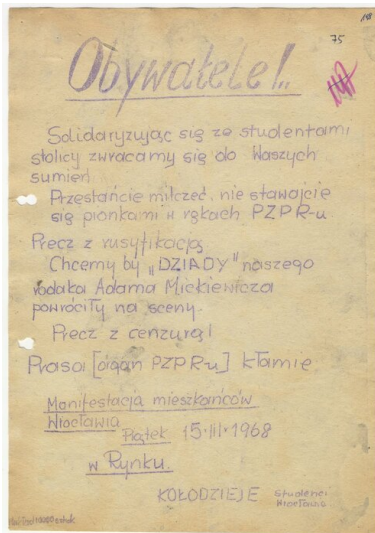 75
Obywatele!..
Solidaryzując się ze studentami
stolicy zwracamy się do Waszych
sumień!
Przestańcie milczeć, nie stawajcie
się pionkami w rękach PZPR-u
Precz z rusyfikacją
Chcemy by „DZIADY" naszego
rodaka Adama Mickiewicza
powróciły na sceny.
Precz z cenzurą!
Prasa [organ PZPR-u] kłamie
Manifestacja mieszkańców
Wrocławia
Piątek 15.III.1968
w Rynku.
KOŁODZIEJE studenci
Wrocławia